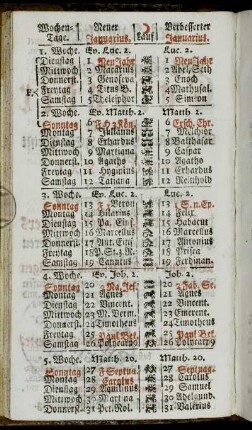 Wochen- Neuer ☽ Verbesserter
Tage. Januarius. Lauf Januarius.
1. Woche. Ev. Luc. 2. Luc. 2.
Dienstag 1 Neu Jahr 1 Neu Jahr
Mittwoch 2 Macarius 2 Abel, Seth
Donnerst. 3 Genofeva 3 Enoch
Freytag 4 Titus B. 4 Mathusal.
Samstag 5 Thelesphor. 5 Simeon
2. Woche. Ev. Matth. 2. Matth. 2.
Sonntag 6 6 Ersch. Chr.
Montag 7 Julianus 7 Melchior
Dienstag 8 Erhardus 8 Balthasar
Mittwoch 9 Martianus 9 Caspar
Donnerst. 10 Agatho 10 Agatho
Freytag 11 Hyginius 11 Erhardus
Samstag 12 Tatiana 12 Reinhold
3. Woche. Ev. Luc. 2. Luc. 2.
Sonntag 13 13 1 S. n. Ep.
Montag 14 Hilarius 14 Felix
Dienstag 15 Pa. Eins. 15 Habacuc
Mittwoch 16 Marcellus 16 Marcellus
Donnerst. 17 Ant. Eins. 17 Antonius
Freytag 18 P. St. z. R. 18 Prisca
Samstag 19 Canutus 19 Ferdinan.
4. Woche. Ev. Joh. 2. Joh. 2.
Sonntag 20 2 Na. Jes. 20 Fab. Se.
Montag 21 Agnes 21 Agnes
Dienstag 22 Vincent. 22 Vincent.
Mittwoch 23 M. Verm. 23 Emerent.
Donnerst. 24 Timotheus 24 Timoth.
Freytag 25 Paul Bek. 25 Paul Be.
Samstag 26 Polycarp 26 Polycarp
5. Woche. Matth. 20. Matth. 20.
Sonntag 27 Septua. 27 Septuag.
Montag 28 Carolus 28 Carolus
Dienstag 29 29 Samuel
Mittwoch 30 Martina 30 Adelgund.
Donnerst. 31 Pet. Nol. 31 Valerius